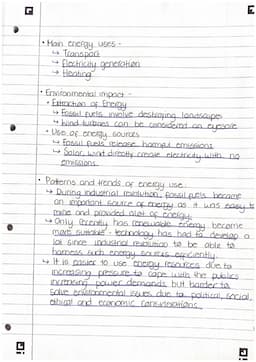 • Main energy uses -
↳ Transport
↳ Electricity generation
↳ Heating
• Environmental impact -
• Extraction of Energy
↳ Fossil fuels involve destroying landscapes
↳ Wind turbines can be considered an eyesore
• Use of energy sources
↳ Fossil fuels release harmful emissions
↳ Solar, wind directly create electricity with no
emissions.
• Patterns and trends of energy use:
↳ During industrial revolution, fossil fuels became
an important source of energy as it was easy to
mine and provided alot of energy.
↳ Only recently has renewable energy become
more suitable - technology has had to develop a
lot since industrial revolution to be able to
harness such energy sources efficiently.
↳ It is easier to use energy resources due to
increasing pressure to cope with the publics
increasing power demands but harder to
solve environmental issues due to political, social,
ethical and economic considerations.